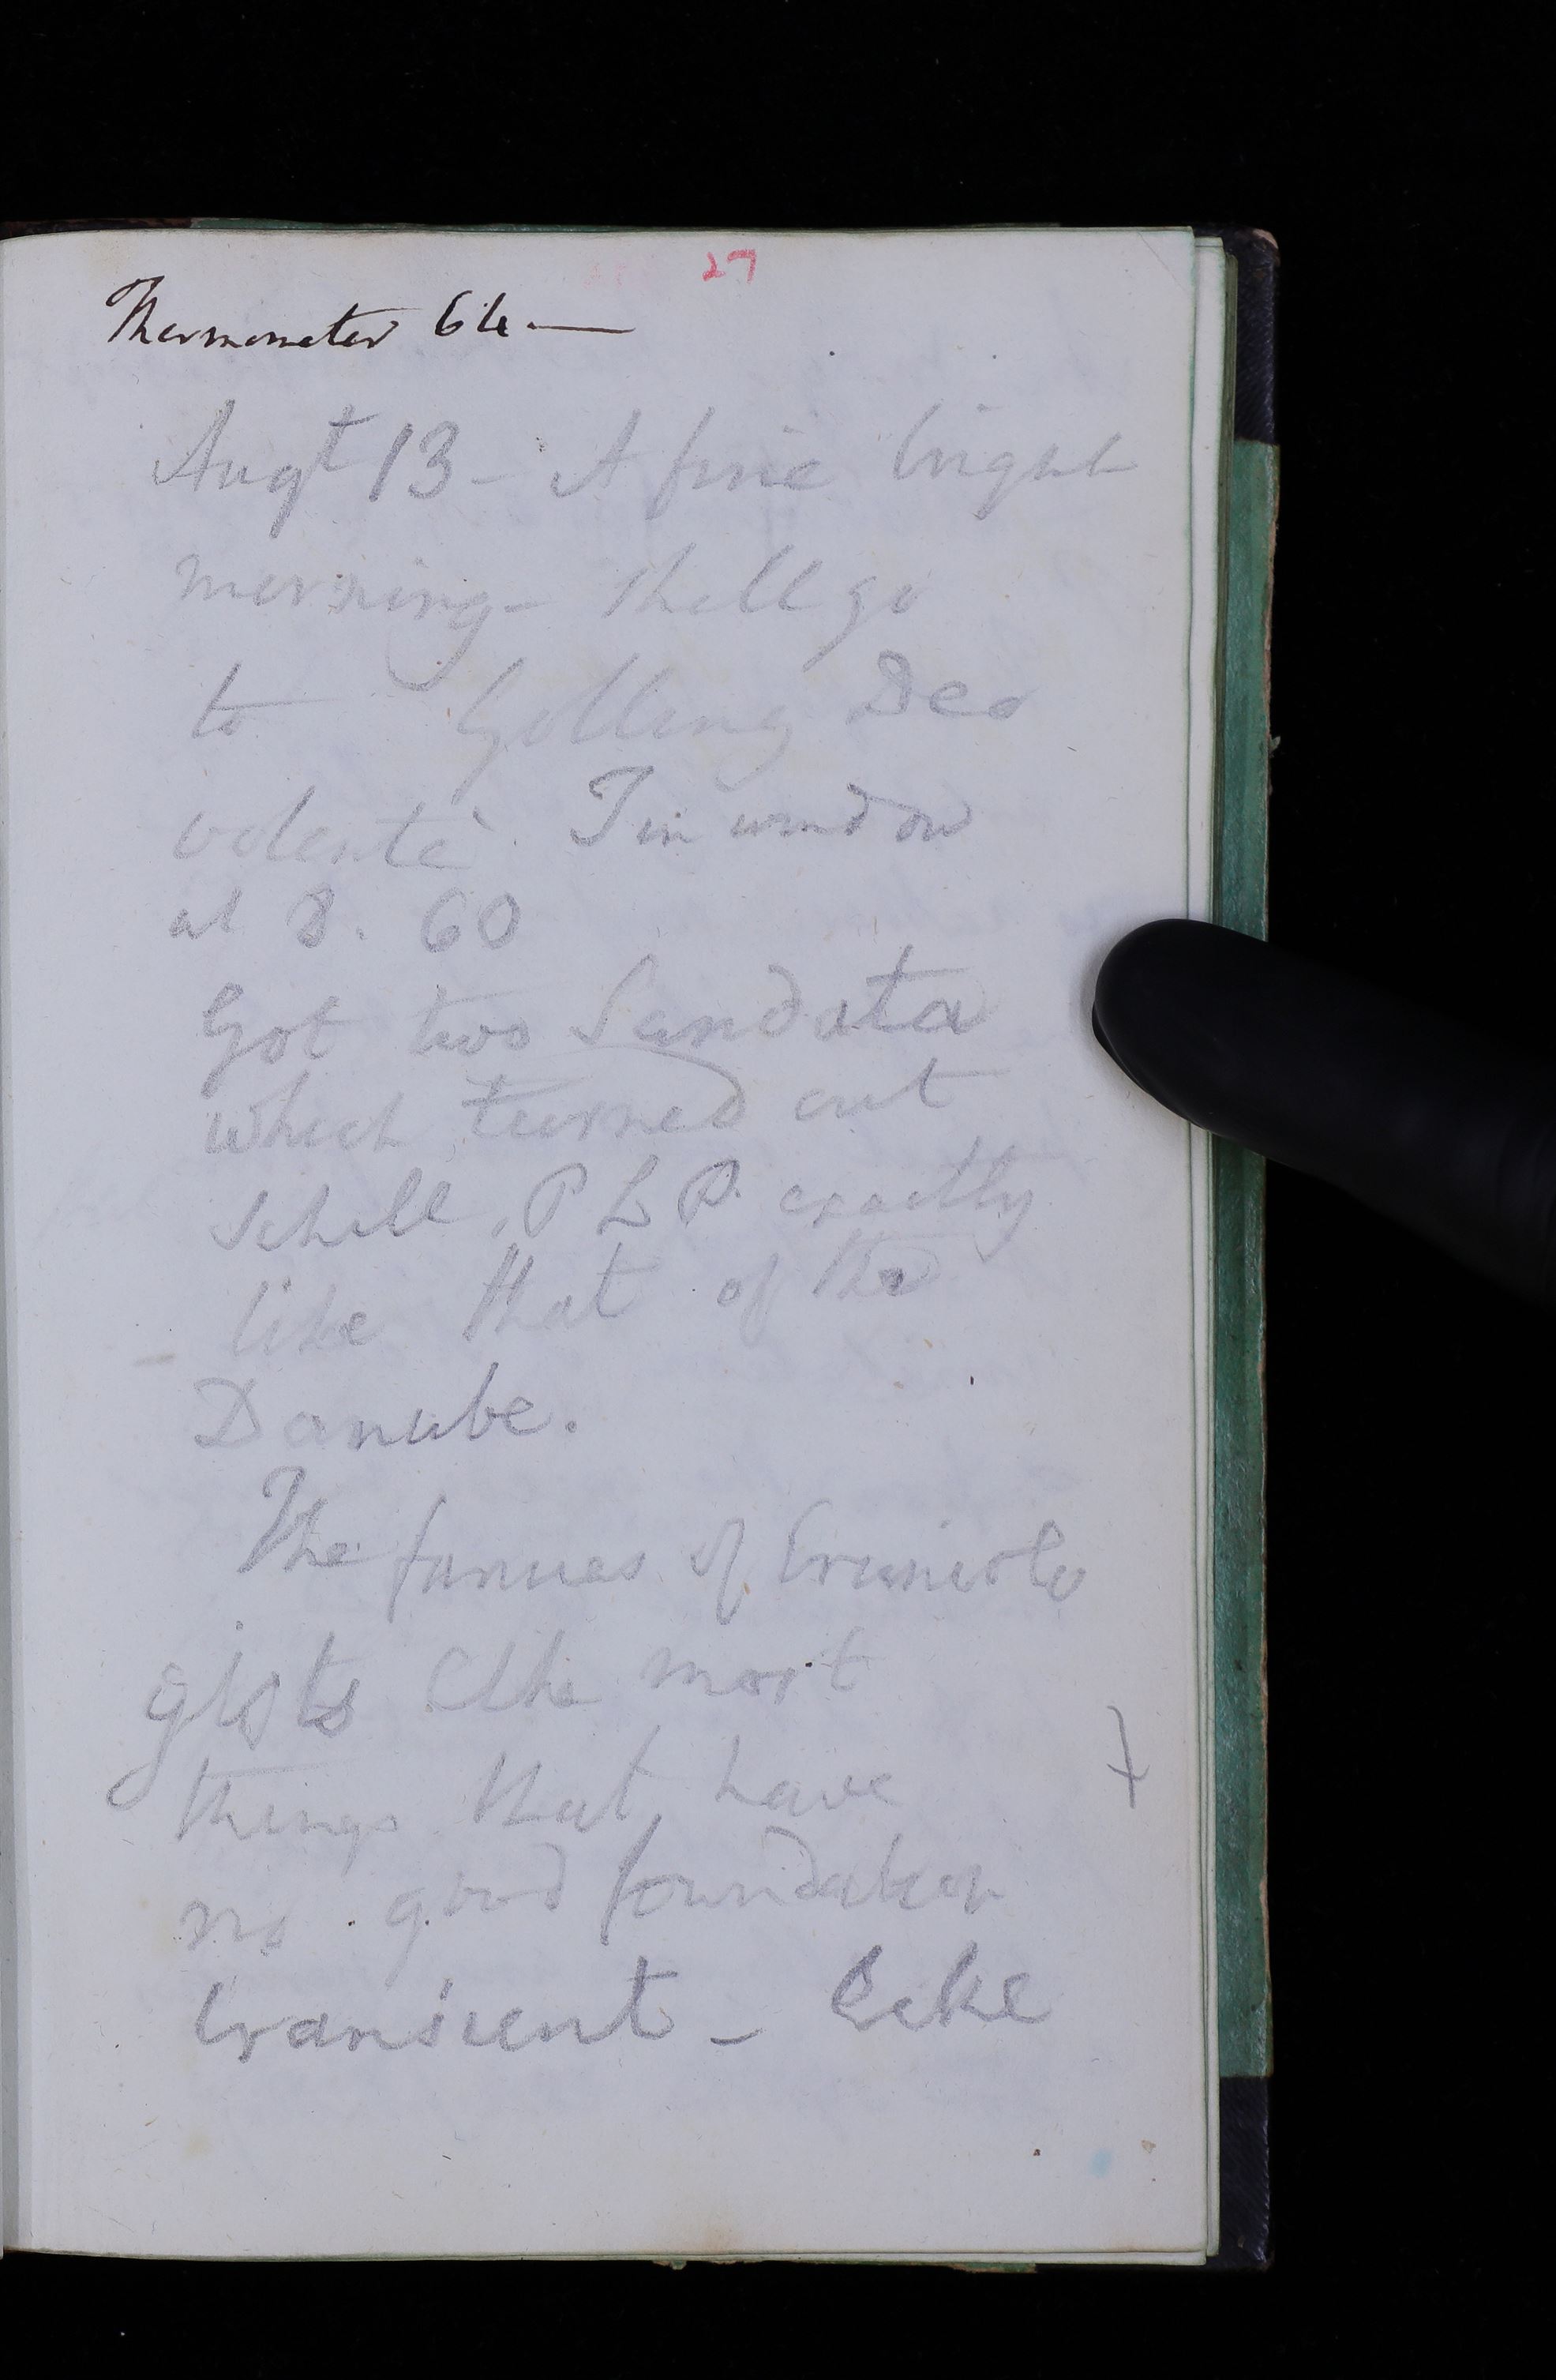 27
Thermometer 64.—
Augt 13 - A fine bright
morning - Shall go
to Golling Deo
volente. T in window
at 8. 60
Got two Sandata
which turned out
Schill. P L P. exactly
like that of the
Danube.
The of
gists like most
things that have
no good foundation
transient - like